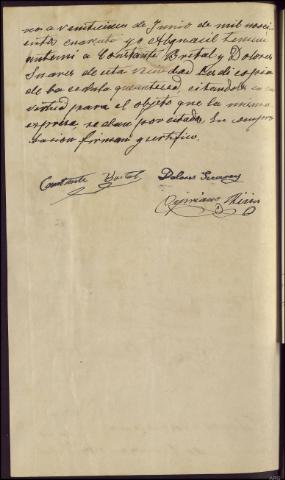 no a veinticinco de Junio de mil nove
cientos cuarenta yo el Alguacil
a Constante Bretal y Dolores
Suarez de esta vecindad les di copia
de la cedula que antecede, citandoles en su
virtud para el objeto que la misma
expresa, se dan por citados. En compro
bacion firman y certifico.
Constante Bretal Dolores Suarez
Cipriano